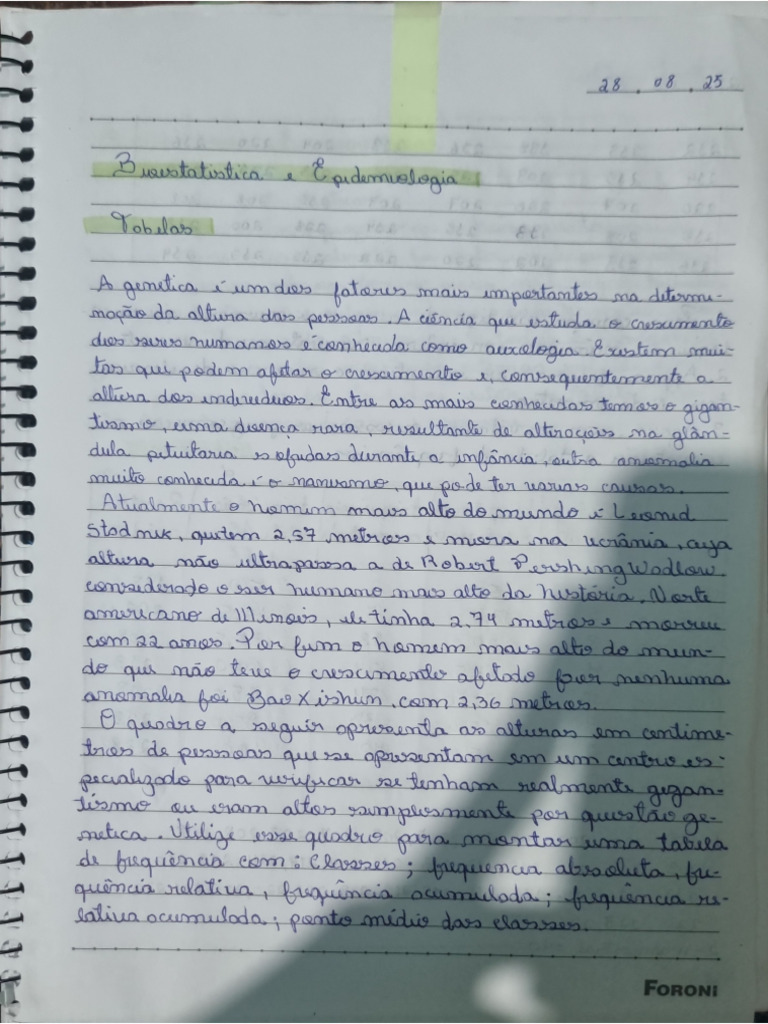 28 . 08 . 25
Bioestatistica e Epidemiologia
Tabelas
A genetica é um dos fatores mais importantes na determi-
nação da altura das pessoas. A ciência que estuda o crescimento
dos seres humanos é conhecida como auxologia. Existem mui-
tas que podem afetar o crescimento e, consequentemente a
altura dos individuos. Entre as mais conhecidas temos o gigan-
tismo, uma doença rara, resultante de alterações na glân-
dula pituitaria sofridas durante a infância, outra anomalia
muito conhecida é o nanismo, que pode ter varias causas.
Atualmente o homem mais alto do mundo é Leonid
Stadnik, que tem 2,57 metros e mora na ucrânia, cuja
altura não ultrapassa a de Robert Pershing Wadlow
considerado o ser humano mais alto da história. Norte
americano de Illinois, ele tinha 2,74 metros e morreu
com 22 anos. Por fim o homem mais alto do mun-
do que não teve o crescimento afetado por nenhuma
anomalia foi Bao Xishun, com 2,36 metros.
O quadro a seguir apresenta as alturas em centime-
tros de pessoas que se apresentam em um centro es-
pecializado para verificar se tenham realmente gigan-
tismo ou eram altos simplesmente por questão ge-
netica. Utilize esse quadro para montar uma tabela
de frequência com: Classes; frequencia absoluta, fre-
quência relativa, frequência acumulada; frequência re-
lativa acumulada; ponto médio das classes.
FORONI